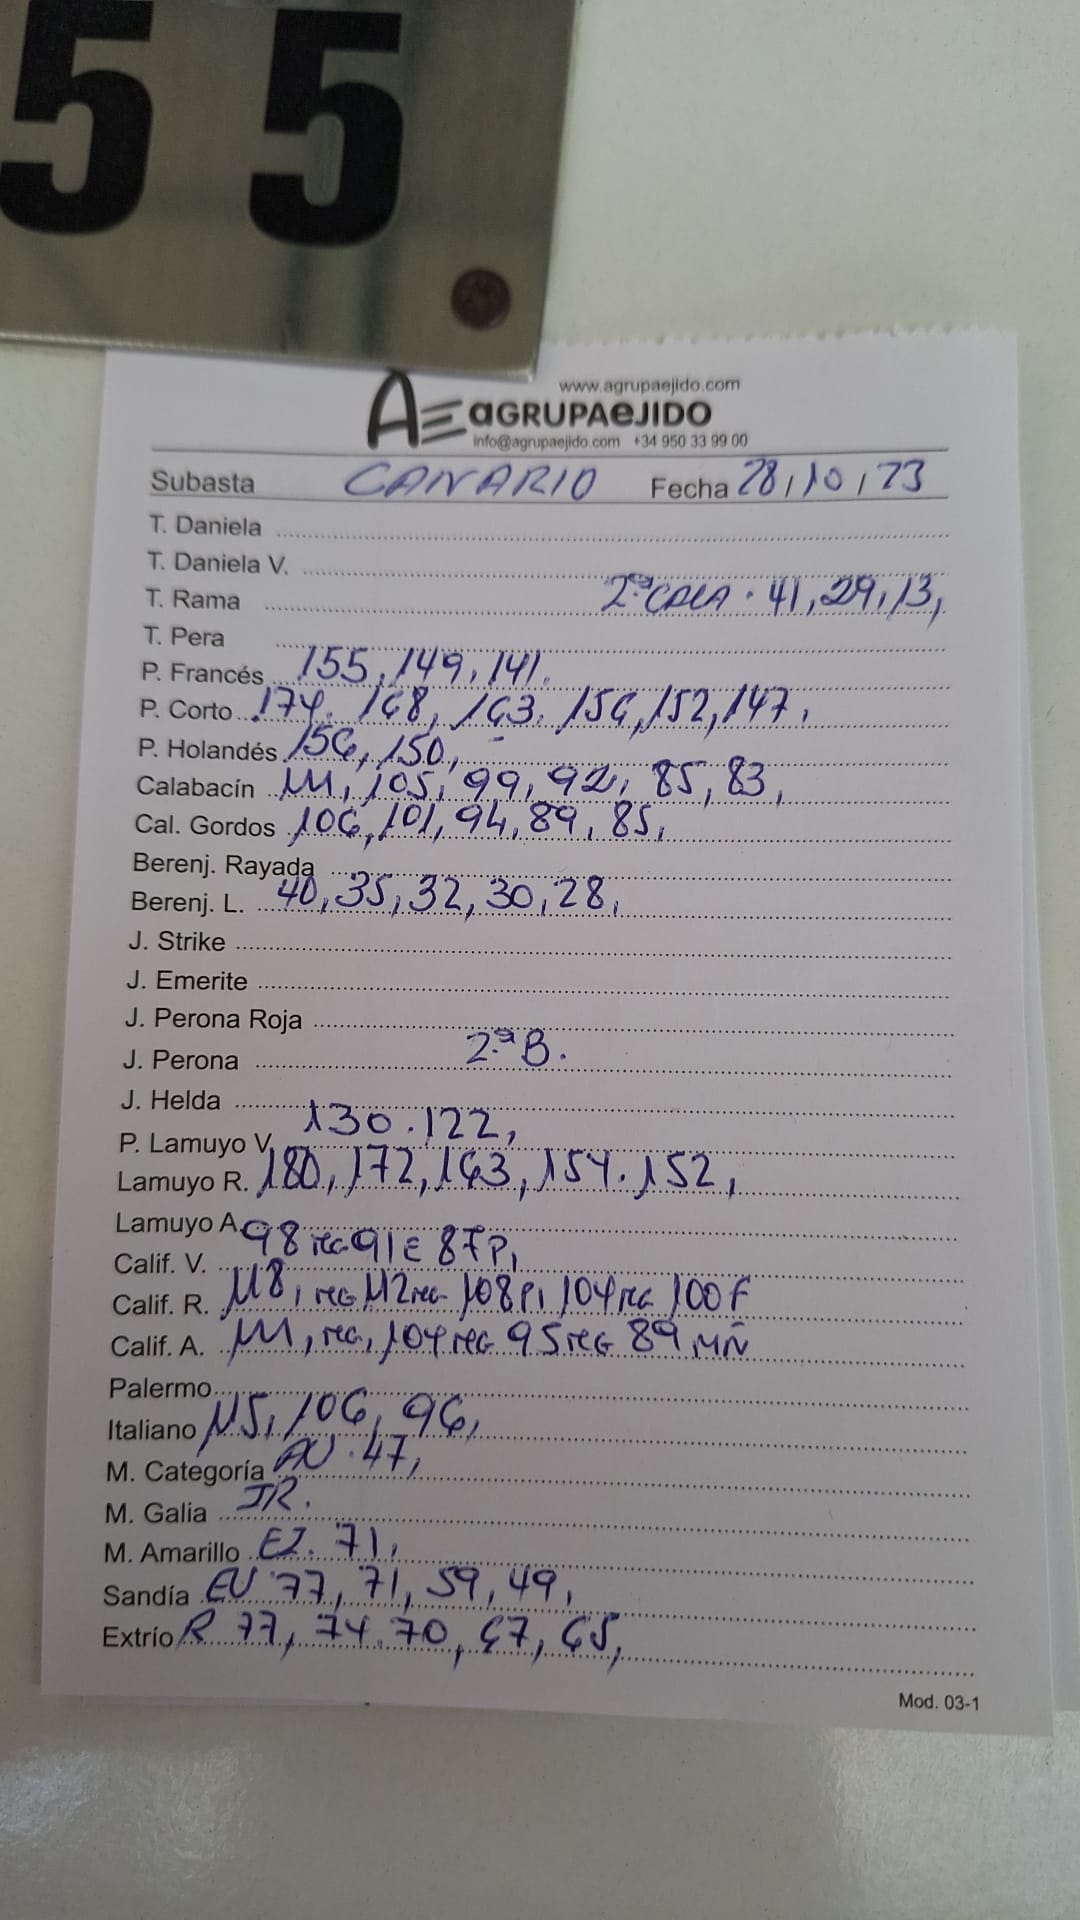 55
www.agrupaejido.com
AE aGRUPAeJIDO
info@agrupaejido.com +34 950 33 99 00
Subasta CANARIO Fecha 28/10/23
T. Daniela
T. Daniela V.
T. Rama 2ª CALA. 41, 29, 13,
T. Pera
P. Francés 155, 149, 141.
P. Corto 174, 168, 163, 156, 152, 147,
P. Holandés 156, 150,
Calabacín 111, 105, 99, 92, 85, 83,
Cal. Gordos 106, 101, 94, 89, 85,
Berenj. Rayada
Berenj. L. 40, 35, 32, 30, 28,
J. Strike
J. Emerite
J. Perona Roja
J. Perona 2.ª B.
J. Helda
P. Lamuyo V. 130. 122,
Lamuyo R. 180, 172, 163, 154. 152,
Lamuyo A.
Calif. V. 98 reG 91 E 87 P,
Calif. R. 118, reG 112 reG 108 P, 104 reG 100 F
Calif. A. 111, reG, 104 reG 95 reG 89 MÑ
Palermo
Italiano 115, 106, 96,
M. Categoría AU. 47,
M. Galia JR.
M. Amarillo EZ. 71,
Sandía EU 77, 71, 59, 49,
Extrío R 77, 74. 70, 67, 65,
Mod. 03-1